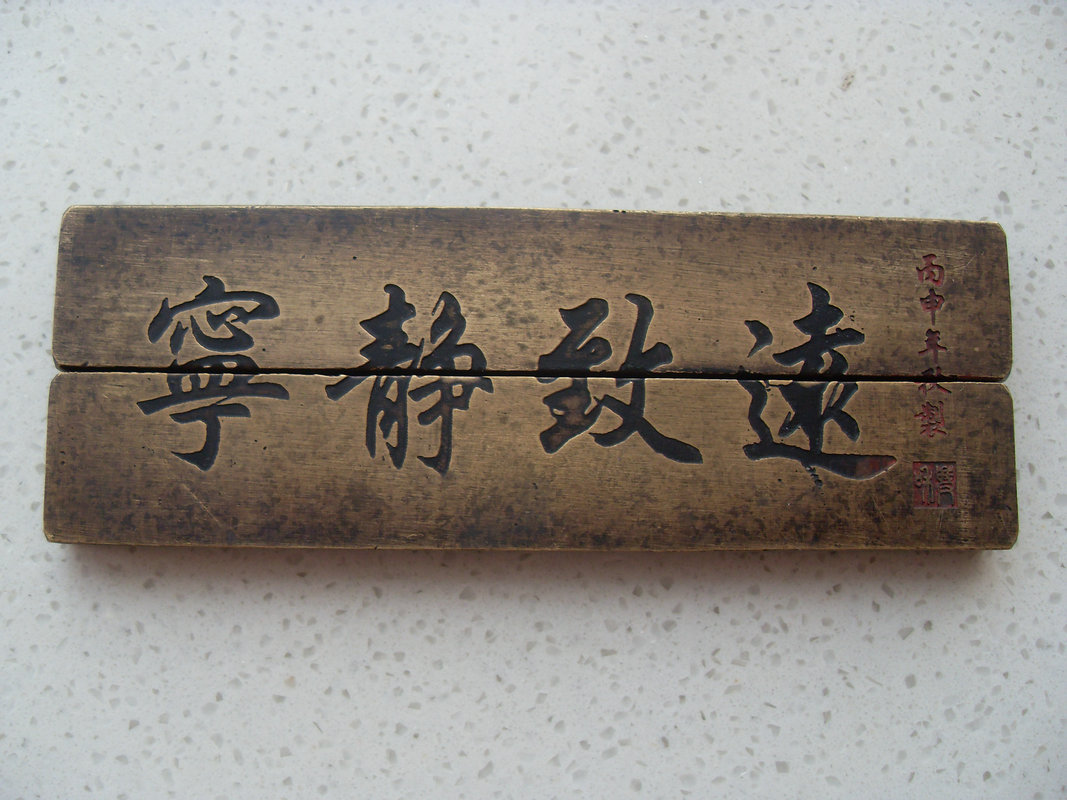 寧靜致遠
丙申年秋製